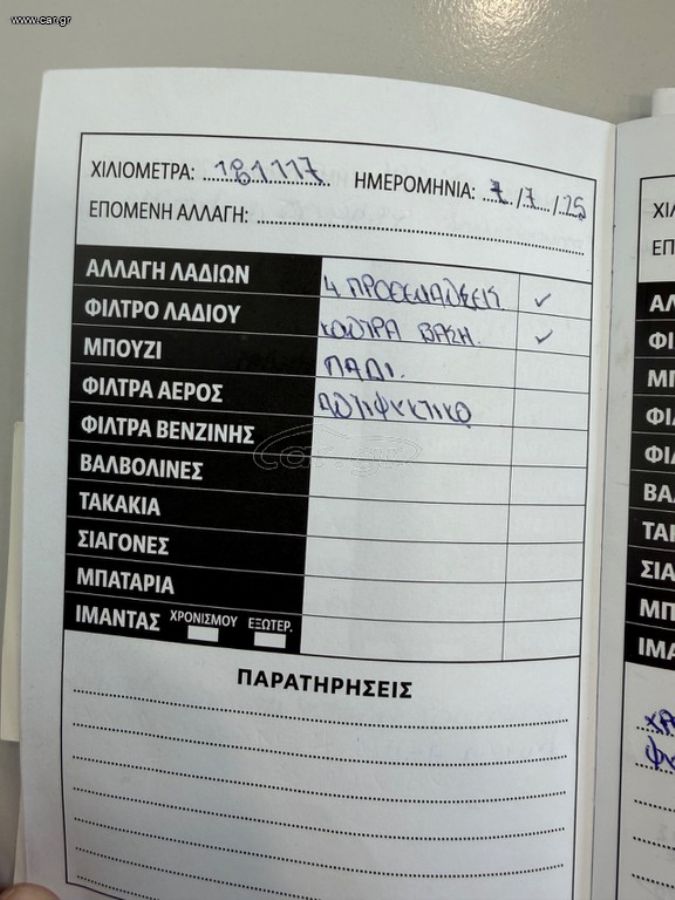 www.car.gr
ΧΙΛΙΟΜΕΤΡΑ: 181117 ΗΜΕΡΟΜΗΝΙΑ: 7/7/25
ΕΠΟΜΕΝΗ ΑΛΛΑΓΗ:
ΑΛΛΑΓΗ ΛΑΔΙΩΝ 4 ✓
ΦΙΛΤΡΟ ΛΑΔΙΟΥ ΚΟΝΤΡΑ ΒΑΣΗ. ✓
ΜΠΟΥΖΙ ΠΑΔΙ.
ΦΙΛΤΡΑ ΑΕΡΟΣ ΑΝΤΙΨΥΚΤΙΚΟ
ΦΙΛΤΡΑ ΒΕΝΖΙΝΗΣ
ΒΑΛΒΟΛΙΝΕΣ
ΤΑΚΑΚΙΑ
ΣΙΑΓΟΝΕΣ
ΜΠΑΤΑΡΙΑ
ΙΜΑΝΤΑΣ ΧΡΟΝΙΣΜΟΥ ΕΞΩΤΕΡ.
ΠΑΡΑΤΗΡΗΣΕΙΣ
car.gr